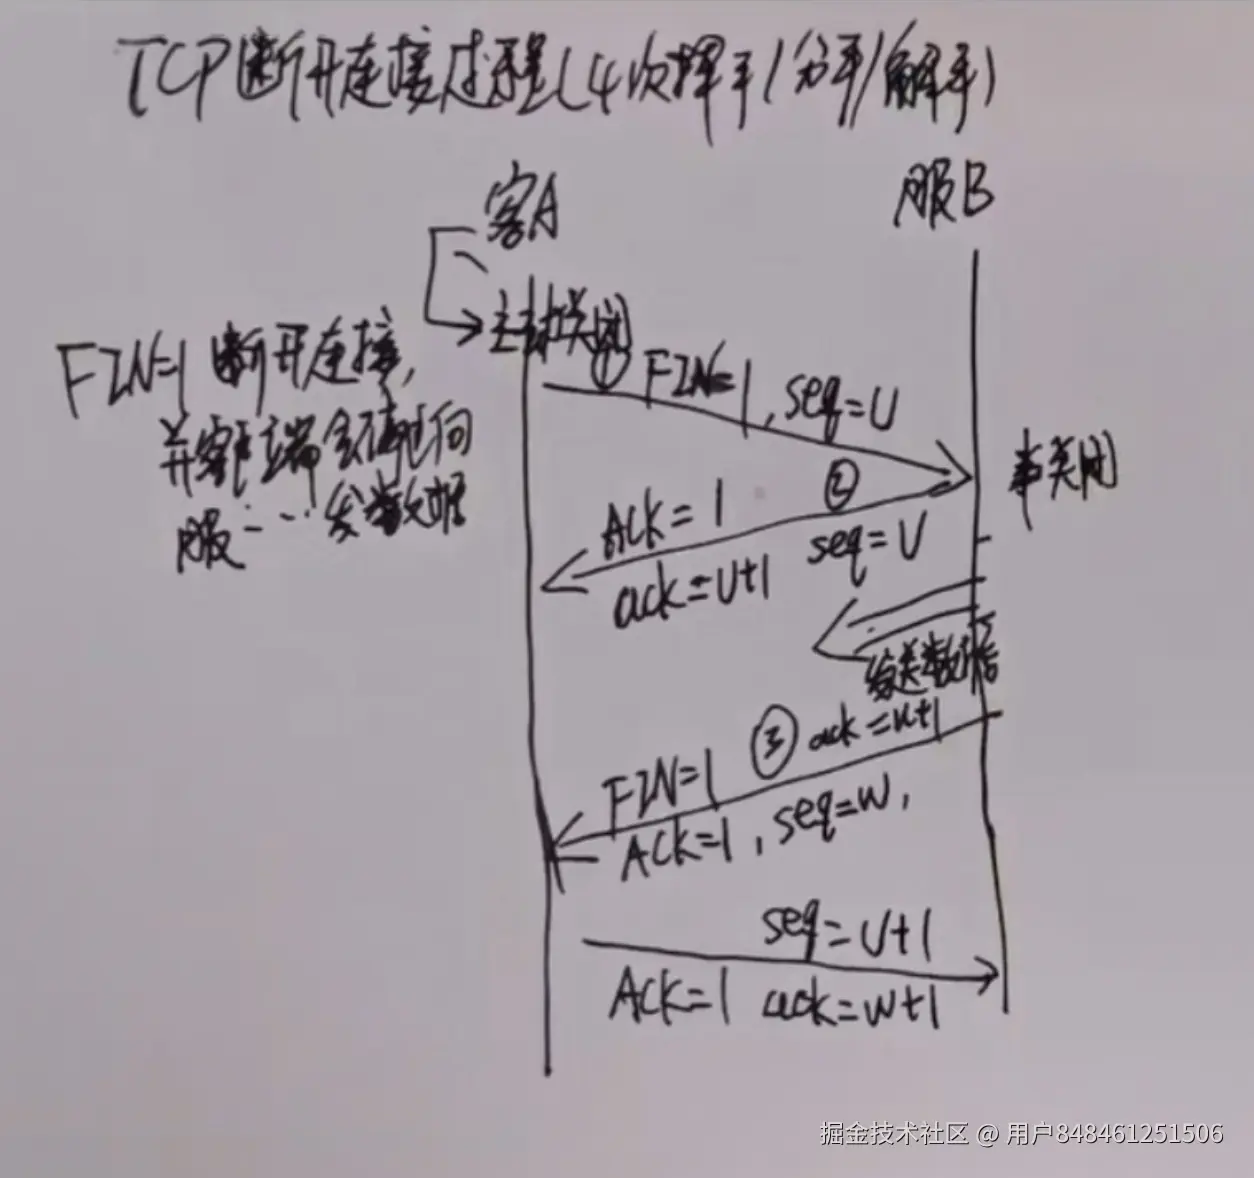 TCP断开连接过程(4次挥手/分手/解手)
客A
服B
主动关闭
FIN=1 断开连接,
并客户端会停止向
服-...发数据
①
FIN=1, seq=U
②
ACK=1
seq=V
ack=U+1
关闭
发送数据
③ ack=u+1
FIN=1
ACK=1, seq=w,
seq=U+1
ACK=1 ack=w+1
掘金技术社区 @ 用户848461251506